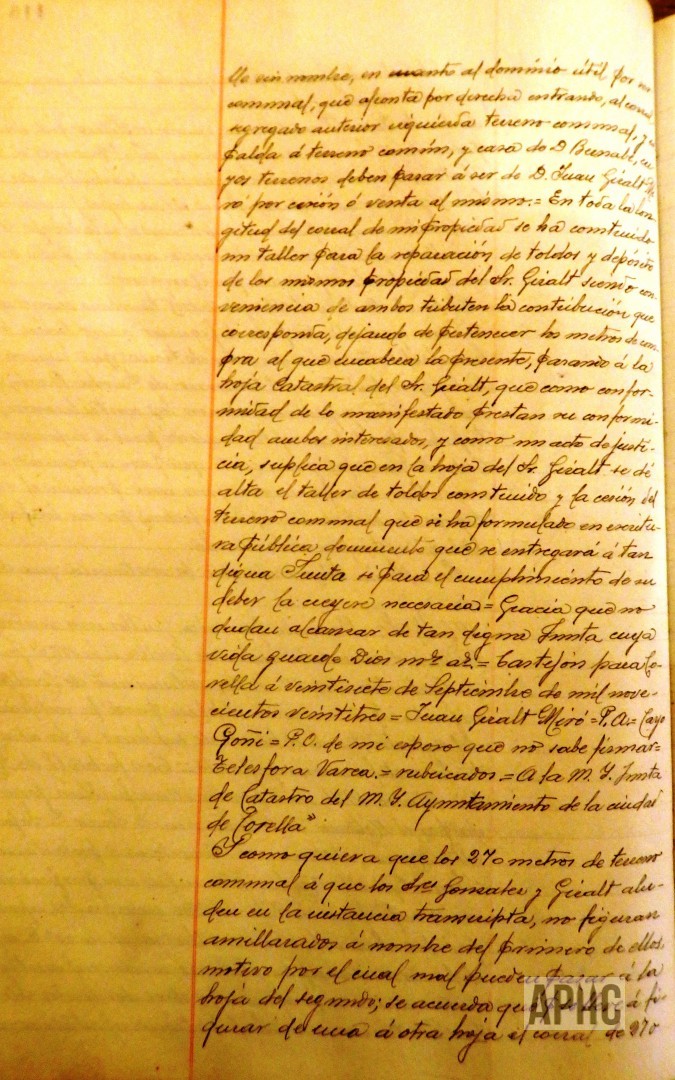 de sin nombre, en cuanto al dominio útil por ser
comunal, que afronta por derecha entrando, al corral
segregado anterior izquierda terreno comunal, y es
palda á terreno común, y casa de D. Bernabé, cu
yos terrenos deben pasar á ser de D. Juan Giralt Mi
ró por cesión ó venta al mismo.= En toda la lon
gitud del corral de mi propiedad se ha construido
un taller para la reparación de toldos y depósito
de los mismos propiedad del Sr. Giralt siendo con
veniencia de ambos tributen la contribución que
corresponda, dejando de pertenecer los metros de com
pra al que encabeza la presente, pasando á la
hoja Catastral del Sr. Giralt, que como confor-
midad de lo manifestado prestan su conformi-
dad ambos interesados, y como un acto de justi-
cia, suplica que en la hoja del Sr. Giralt se dé
alta el taller de toldos construido y la cesión del
terreno comunal que se ha formulado en escritu-
ra pública, documento que se entregará á tan
digna Junta si para el cumplimiento de su
deber la creyere necesaria = Gracia que no
dudan alcanzar de tan digna Junta cuya
vida guarde Dios ms. as.= Castejón para Co-
rella á veintisiete de Septiembre de mil nove-
cientos veintitres = Juan Giralt Miró = P.A.= Cayo
Goñi = P.O. de mi esposo que no sabe firmar=
Telesfora Varea.= rubricados.= A la M. Y. Junta
de Catastro del M. Y. Ayuntamiento de la ciudad
de Corella"
Y como quiera que los 270 metros de terreno
comunal á que los Sres. Gonzalez y Giralt alu-
den en la instancia transcripta, no figuran
amillarados á nombre del primero de ellos
motivo por el cual mal pueden pasar á la
hoja del segundo; se acuerda que á fi-
gurar de una á otra hoja el corral de 270
APHC